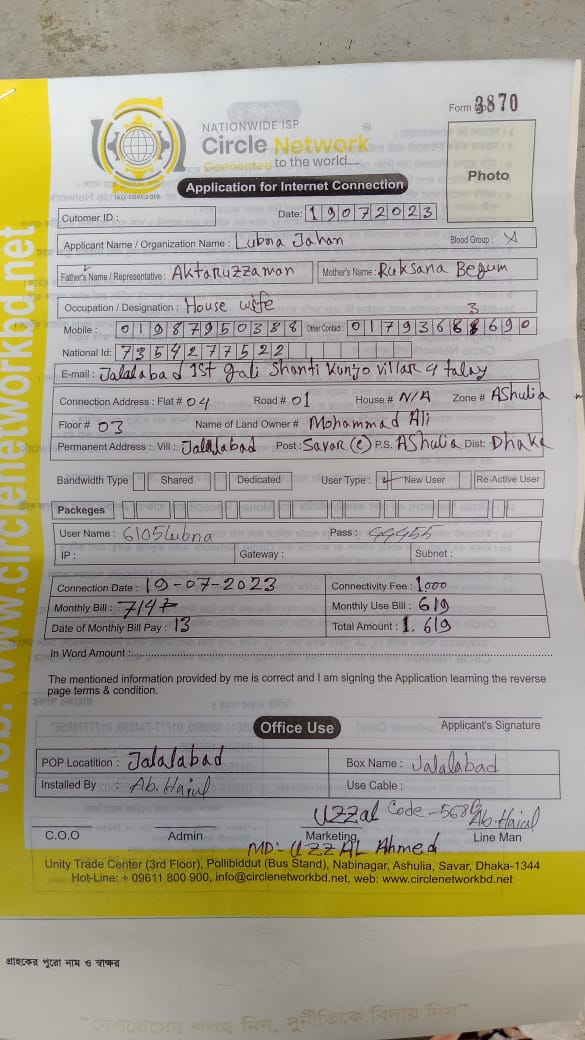 Form No 3870
NATIONWIDE ISP
Circle Network
Connected to the world....
ISO 9001:2015
Application for Internet Connection
Photo
Cutomer ID :
Date: 19072023
Applicant Name / Organization Name : Lubna Jahan Blood Group :
Father's Name / Representative : Aktaruzzaman Mother's Name : Ruksana Begum
Occupation / Designation : House wife
Mobile : 01987950388 Other Contact : 01793683690
National Id: 7354277522
E-mail : Jalalabad 1st gali Shanti Kunjo villar 4 talay
Connection Address : Flat # 04 Road # 01 House # N/A Zone # AShulia
Floor # 03 Name of Land Owner # Mohammad Ali
Permanent Address : Vill : Jalalabad Post : Savar (C) P.S. AShulia Dist: Dhaka
Bandwidth Type Shared Dedicated User Type : New User Re-Active User
Packeges
User Name : 6105Lubna Pass :
IP : Gateway : Subnet :
Connection Date : 19-07-2023 Connectivity Fee : 1000
Monthly Bill : 714 Monthly Use Bill : 619
Date of Monthly Bill Pay : 13 Total Amount : 1,619
In Word Amount :
The mentioned information provided by me is correct and I am signing the Application learning the reverse
page terms & condition.
Office Use
Applicant's Signature
POP Locatition : Jalalabad Box Name : Jalalabad
Installed By : Ab. Haiul Use Cable :
Uzzal Code - Ab. Haiul
C.O.O Admin Marketing Line Man
MD: UZZAL Ahmed
Unity Trade Center (3rd Floor), Pollibiddut (Bus Stand), Nabinagar, Ashulia, Savar, Dhaka-1344
Hot-Line: + 09611 800 900, info@circlenetworkbd.net, web: www.circlenetworkbd.net
web: www.circlenetworkbd.net
গ্রাহকের পুরো নাম ও স্বাক্ষর
"দেশপ্রেমের শপথ নিন, দুর্নীতিকে বিদায় দিন"